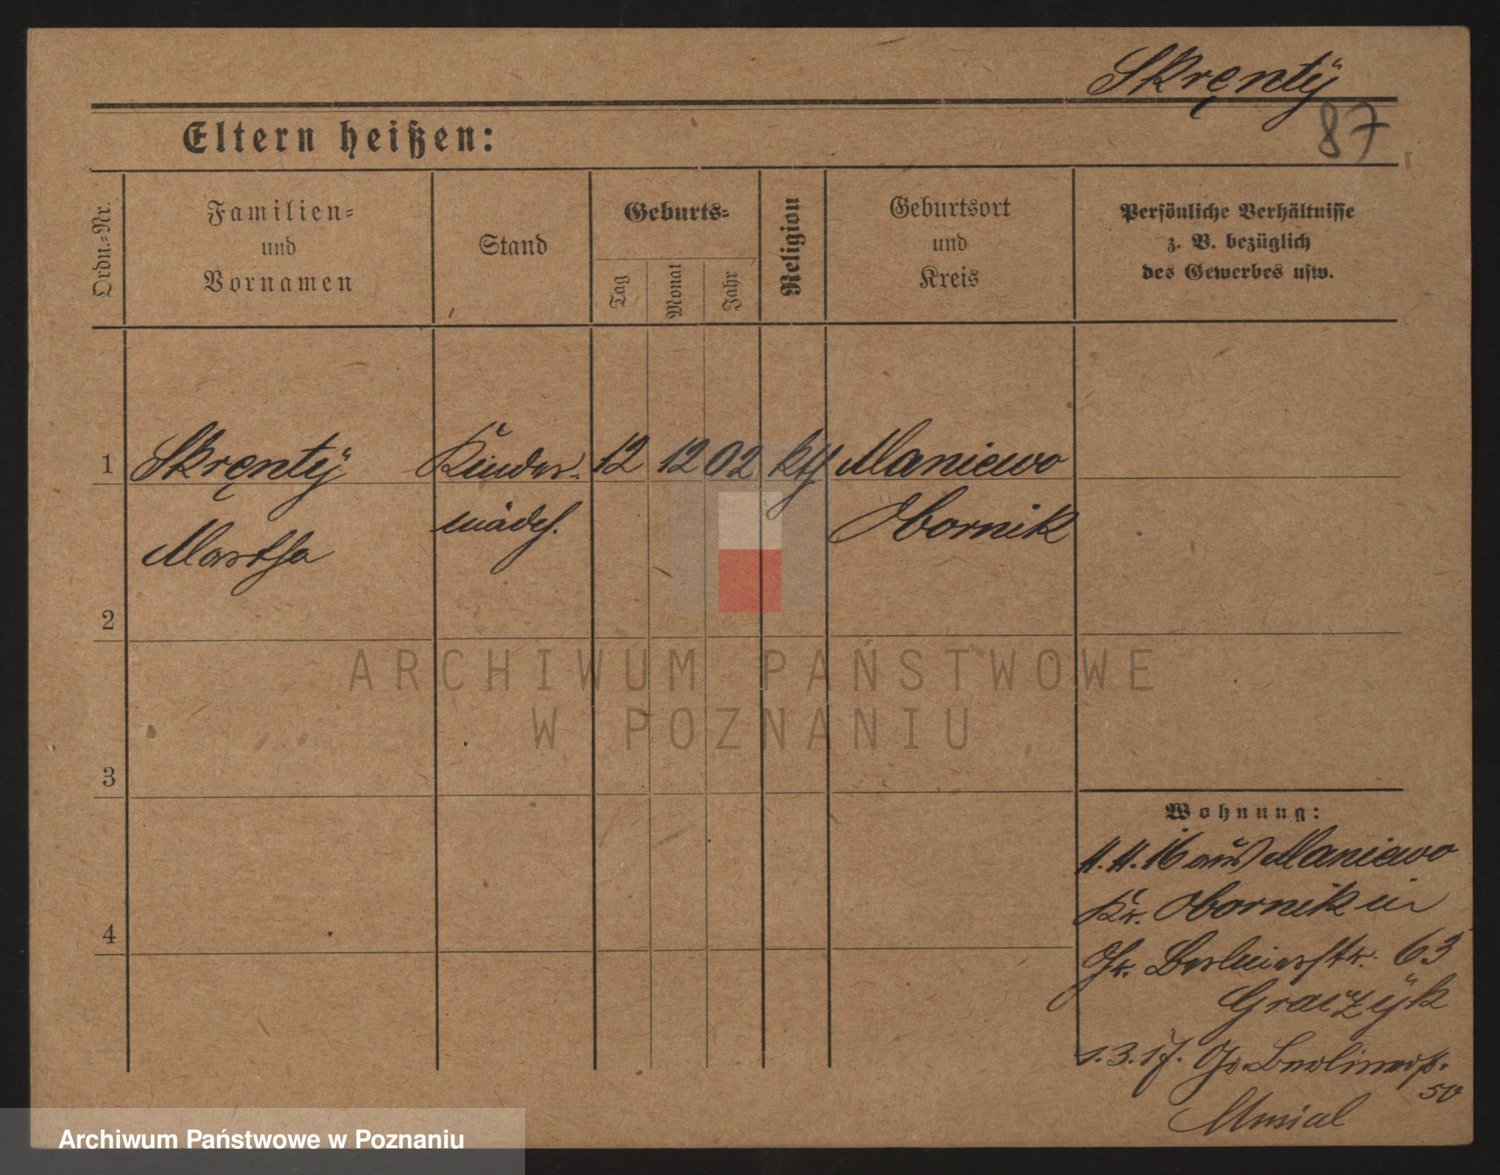 Skręntÿ
87
Eltern heißen:
Ordn.-Nr.
Familien-
und
Vornamen
Stand
Geburts-
Tag
Monat
Jahr
Religion
Geburtsort
und
Kreis
Persönliche Verhältnisse
z. B. bezüglich
des Gewerbes usw.
1 Skręntÿ Kinder- 12 12 02 kth Maniewo
Martha mädch. Obornik
2
3
4
Wohnung:
4.4.16 aus Maniewo
Kr. Obornik in
Gr. Berlinerstr. 63
Graczÿk
1.3.17. Gr. Berlinerst.
50
Musial
ARCHIWUM PAŃSTWOWE
W POZNANIU
Archiwum Państwowe w Poznaniu